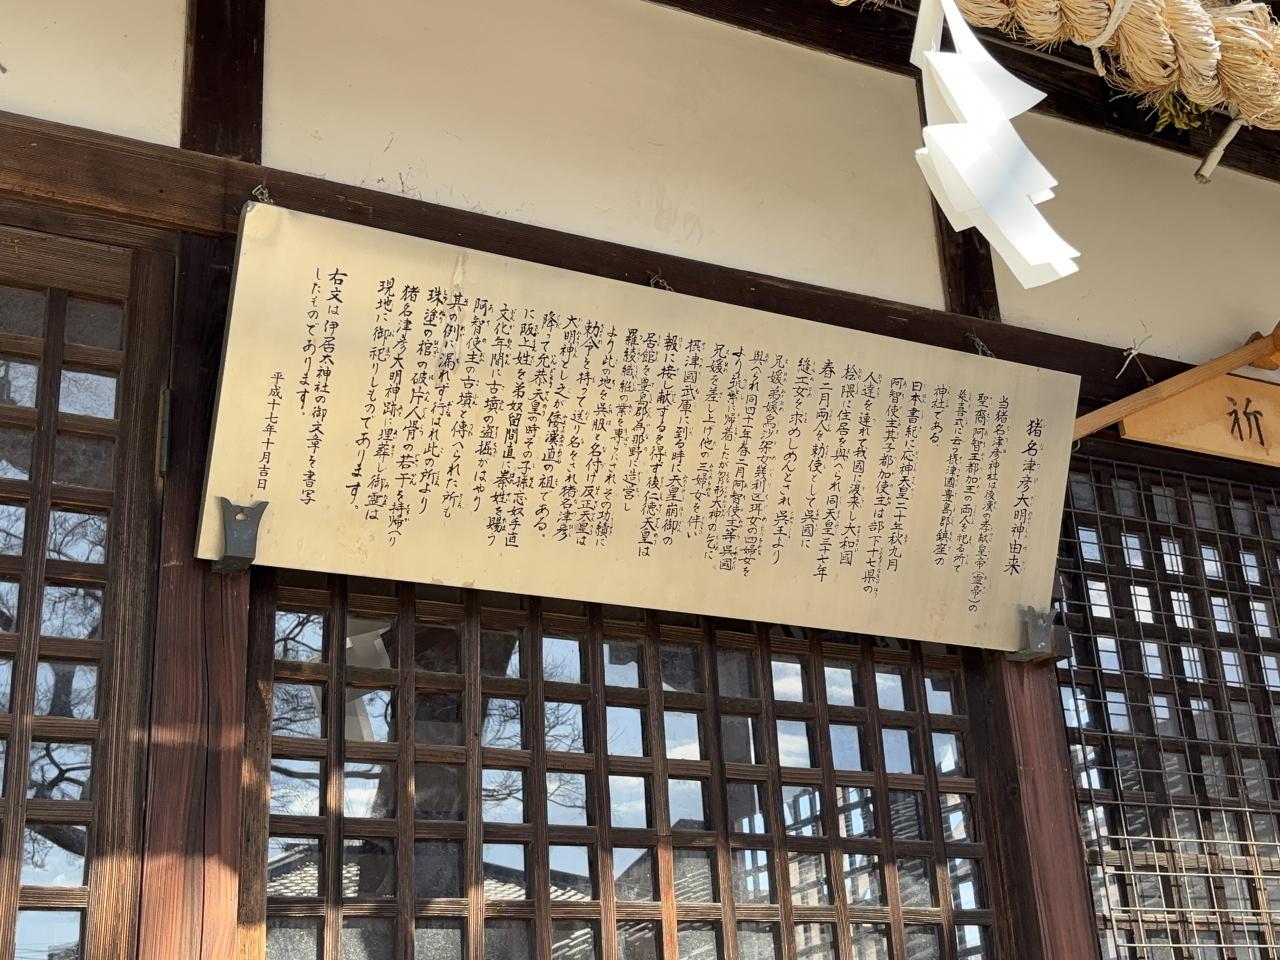 猪名津彦大明神由来
当猪名津彦神社は後漢の孝献皇帝(霊帝)の
聖裔阿智王都加王の両人を祀る所で
延喜式に云う摂津國豊島郡鎮座の
神社である
日本書紀に応神天皇二十年秋九月
阿智使主其子都加使主は部下十七県の
人達を連れて我國に渡来し大和國
桧隈に住居を與へられ同天皇三十七年
春二月両人を勅使として呉國に
縫工女を求めしめんとされ呉王より
兄媛弟媛呉织穴织の四婦女を
與へられ同四十一年春二月阿智使主等呉國
より筑紫に帰着したが胸形大神の乞に
兄媛を差し上げ他の三婦女を伴い
摂津國武庫に到る時に天皇崩御の
報に接し献ずるを得ず後仁徳天皇は
居館を豊島郡為那野に造営し
羅綾織維の業を専らにされ
より此の地を呉服と名付け反正天皇は
勅令を持って送り名をされ猪名津彦
大明神とし之が倭漢直の祖である。
降って允恭天皇の時その子孫志奴手直
に阪上姓を弟奴留間直に秦姓を賜う
文化年間に古墳の盗掘がはやり
阿智使主の古墳と傳へられた所も
其の例に漏れず行はれ此の所より
珠塗の棺の破片人骨の若干を持帰へり
猪名津彦大明神跡に埋葬し御霊は
現地に御祀りしものであります。
右文は伊居太神社の御文章を書写
したものであります。
平成十年十月吉日
祈